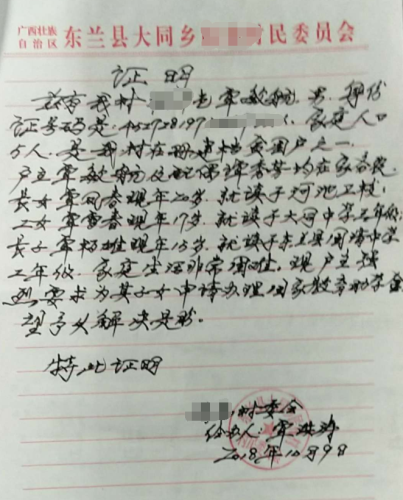 广西壮族自治区 东兰县大同乡 村民委员会
证明
兹有我村 屯覃敏勉,男,身份
证号码是:452728197 ,家庭人口
5人,是我村在册建档贫困户之一,
户主覃敏勉及配偶覃香芬均在家务农,
长女覃 春现年20岁,就读于河池卫校,
二女覃雪春现年17岁,就读于大同中学 年级,
长子覃 雄现年15岁,就读于东兰县国清中学
二年级,家庭生活非常困难,现户主强
烈要求为其子女申请办理国家教育助学金
望予以解决是盼。
特此证明
村委会
经办人:覃洪
2018年10月9日